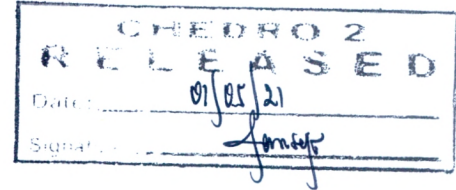 CHEDRO 2
RELEASED
Date: 01/05/21
Signat